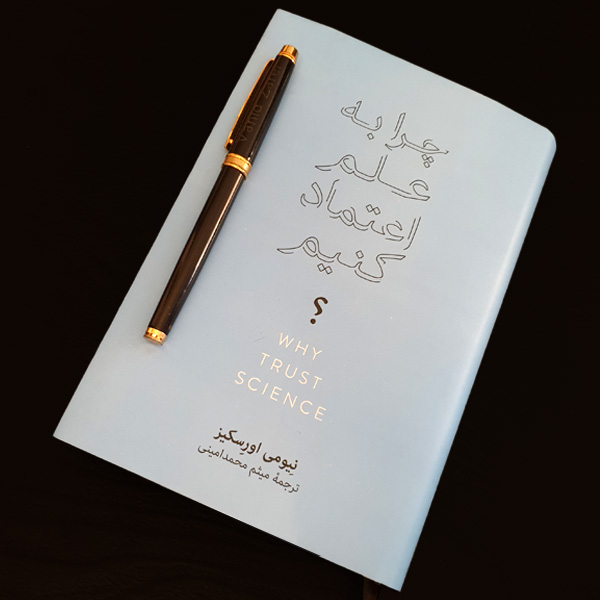 چرا به
علم
اعتماد
کنیم
؟
WHY
TRUST
SCIENCE
نِیومی اورِسکیز
ترجمهٔ میثم محمدامینی